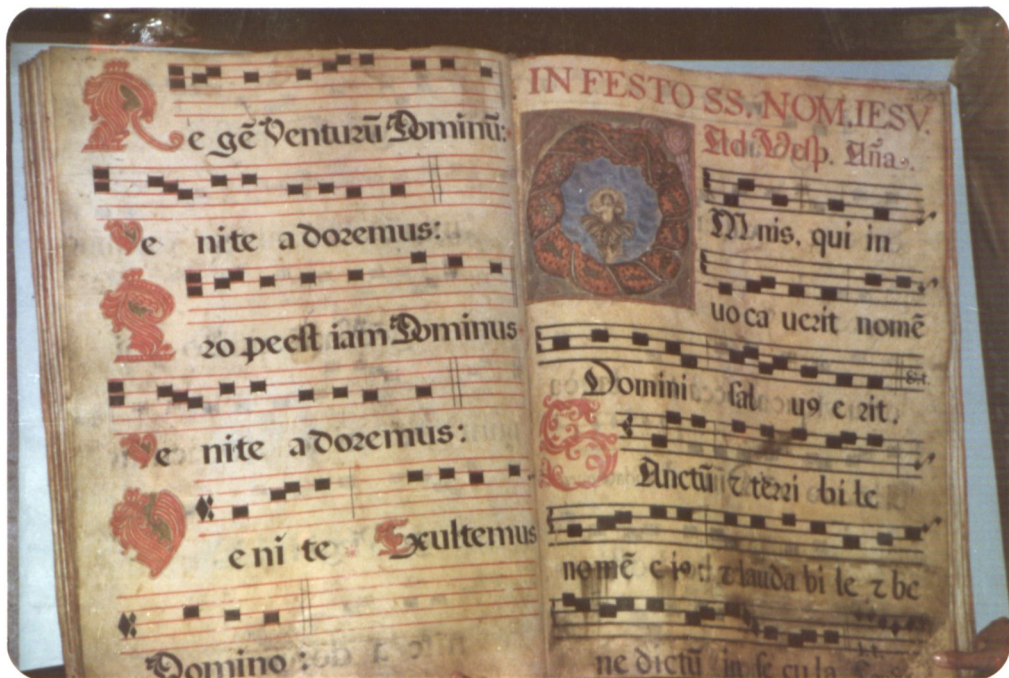 Re gē Venturū Dominū:
Ve nite adoremus:
Pro pe est iam Dominus
Ve nite adoremus:
Ve ni te Exultemus
Domino:
IN FESTO SS. NOM. IESV.
Ad i Vesp. Aña.
OMnis, qui in
uo ca uerit nomē
Domini sal uꝯ e rit.
SAnctū ⁊ terri bi le
nomē eiꝯ ⁊ lauda bi le ⁊ be
ne dictū in se cu la